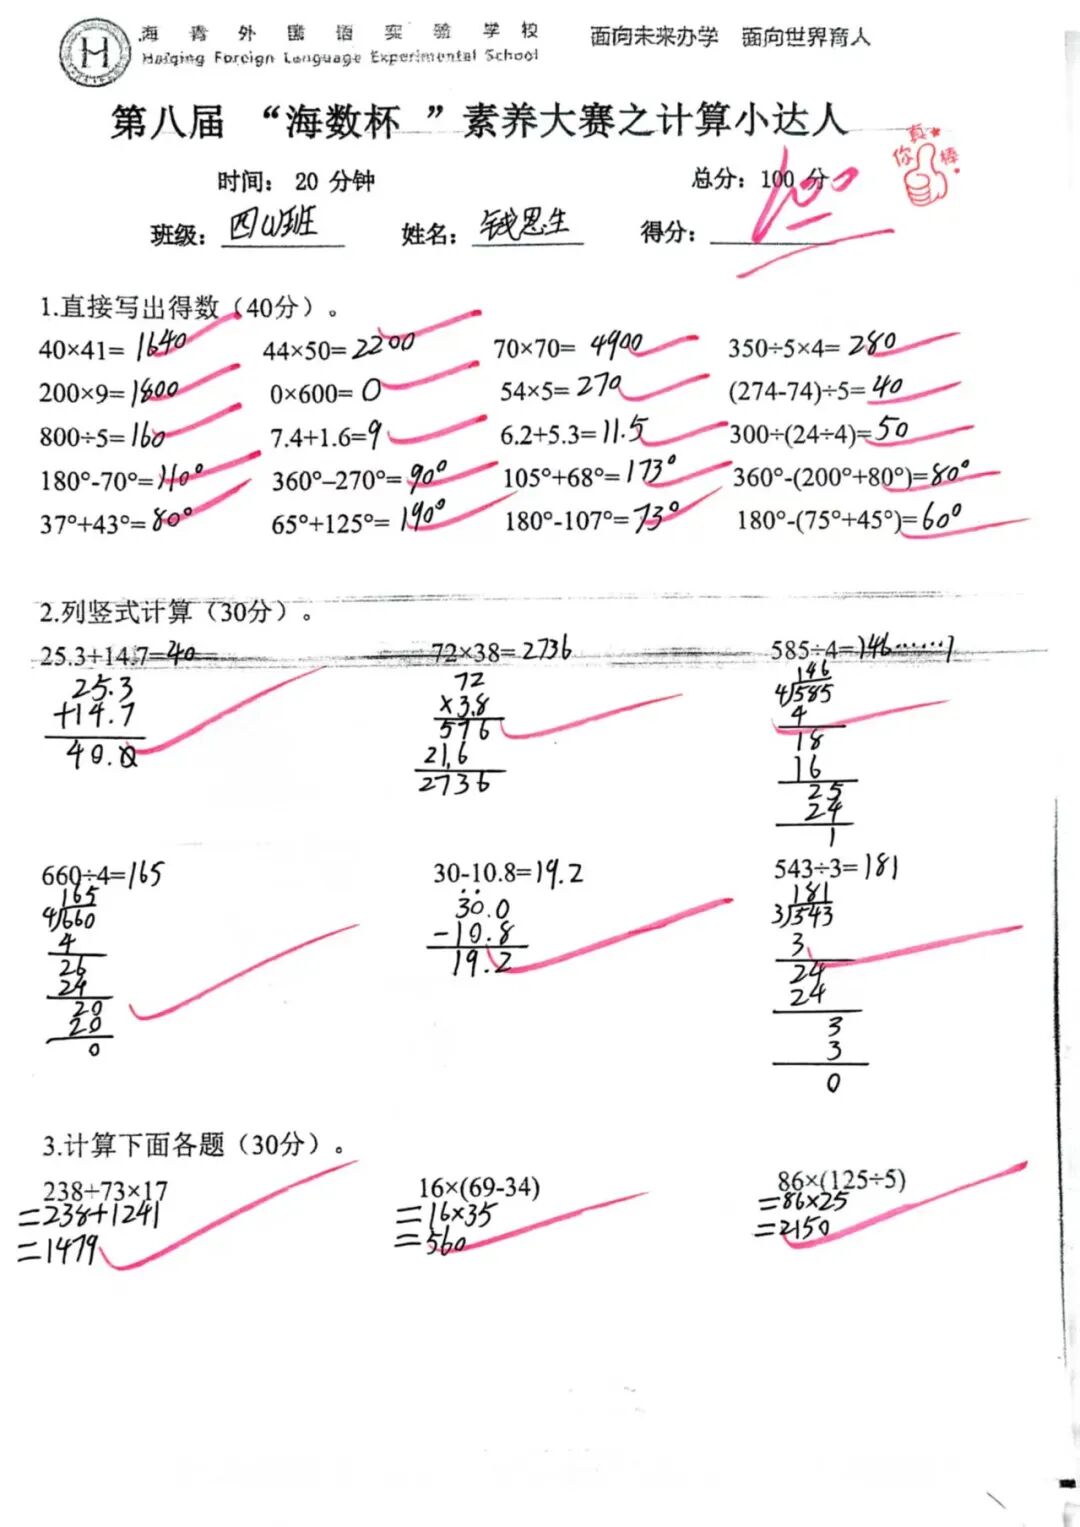 海青外国语实验学校 面向未来办学 面向世界育人
Haiqing Foreign Language Experimental School
第八届 “海数杯 ”素养大赛之计算小达人
真你棒
时间: 20 分钟 总分: 100 分 100
班级: 四(1)班 姓名: 钱思生 得分:
1.直接写出得数(40分)。
40×41= 1640 44×50= 2200 70×70= 4900 350÷5×4= 280
200×9= 1800 0×600= 0 54×5= 270 (274-74)÷5= 40
800÷5= 160 7.4+1.6= 9 6.2+5.3= 11.5 300÷(24÷4)= 50
180°-70°= 110° 360°–270°= 90° 105°+68°= 173° 360°-(200°+80°)= 80°
37°+43°= 80° 65°+125°= 190° 180°-107°= 73° 180°-(75°+45°)= 60°
2.列竖式计算(30分)。
25.3+14.7=40 72×38= 2736 585÷4= 146……1
25.3 72 146
+14.7 ×3.8 4 585
40.0 576 4
21.6 18
2736 16
25
24
1
660÷4=165 30-10.8=19.2 543÷3= 181
165 30.0 181
4 660 -10.8 3 543
4 19.2 3
26 24
24 24
20 3
20 3
0 0
3.计算下面各题(30分)。
238+73×17 16×(69-34) 86×(125÷5)
=238+1241 =16×35 =86×25
=1479 =560 =2150